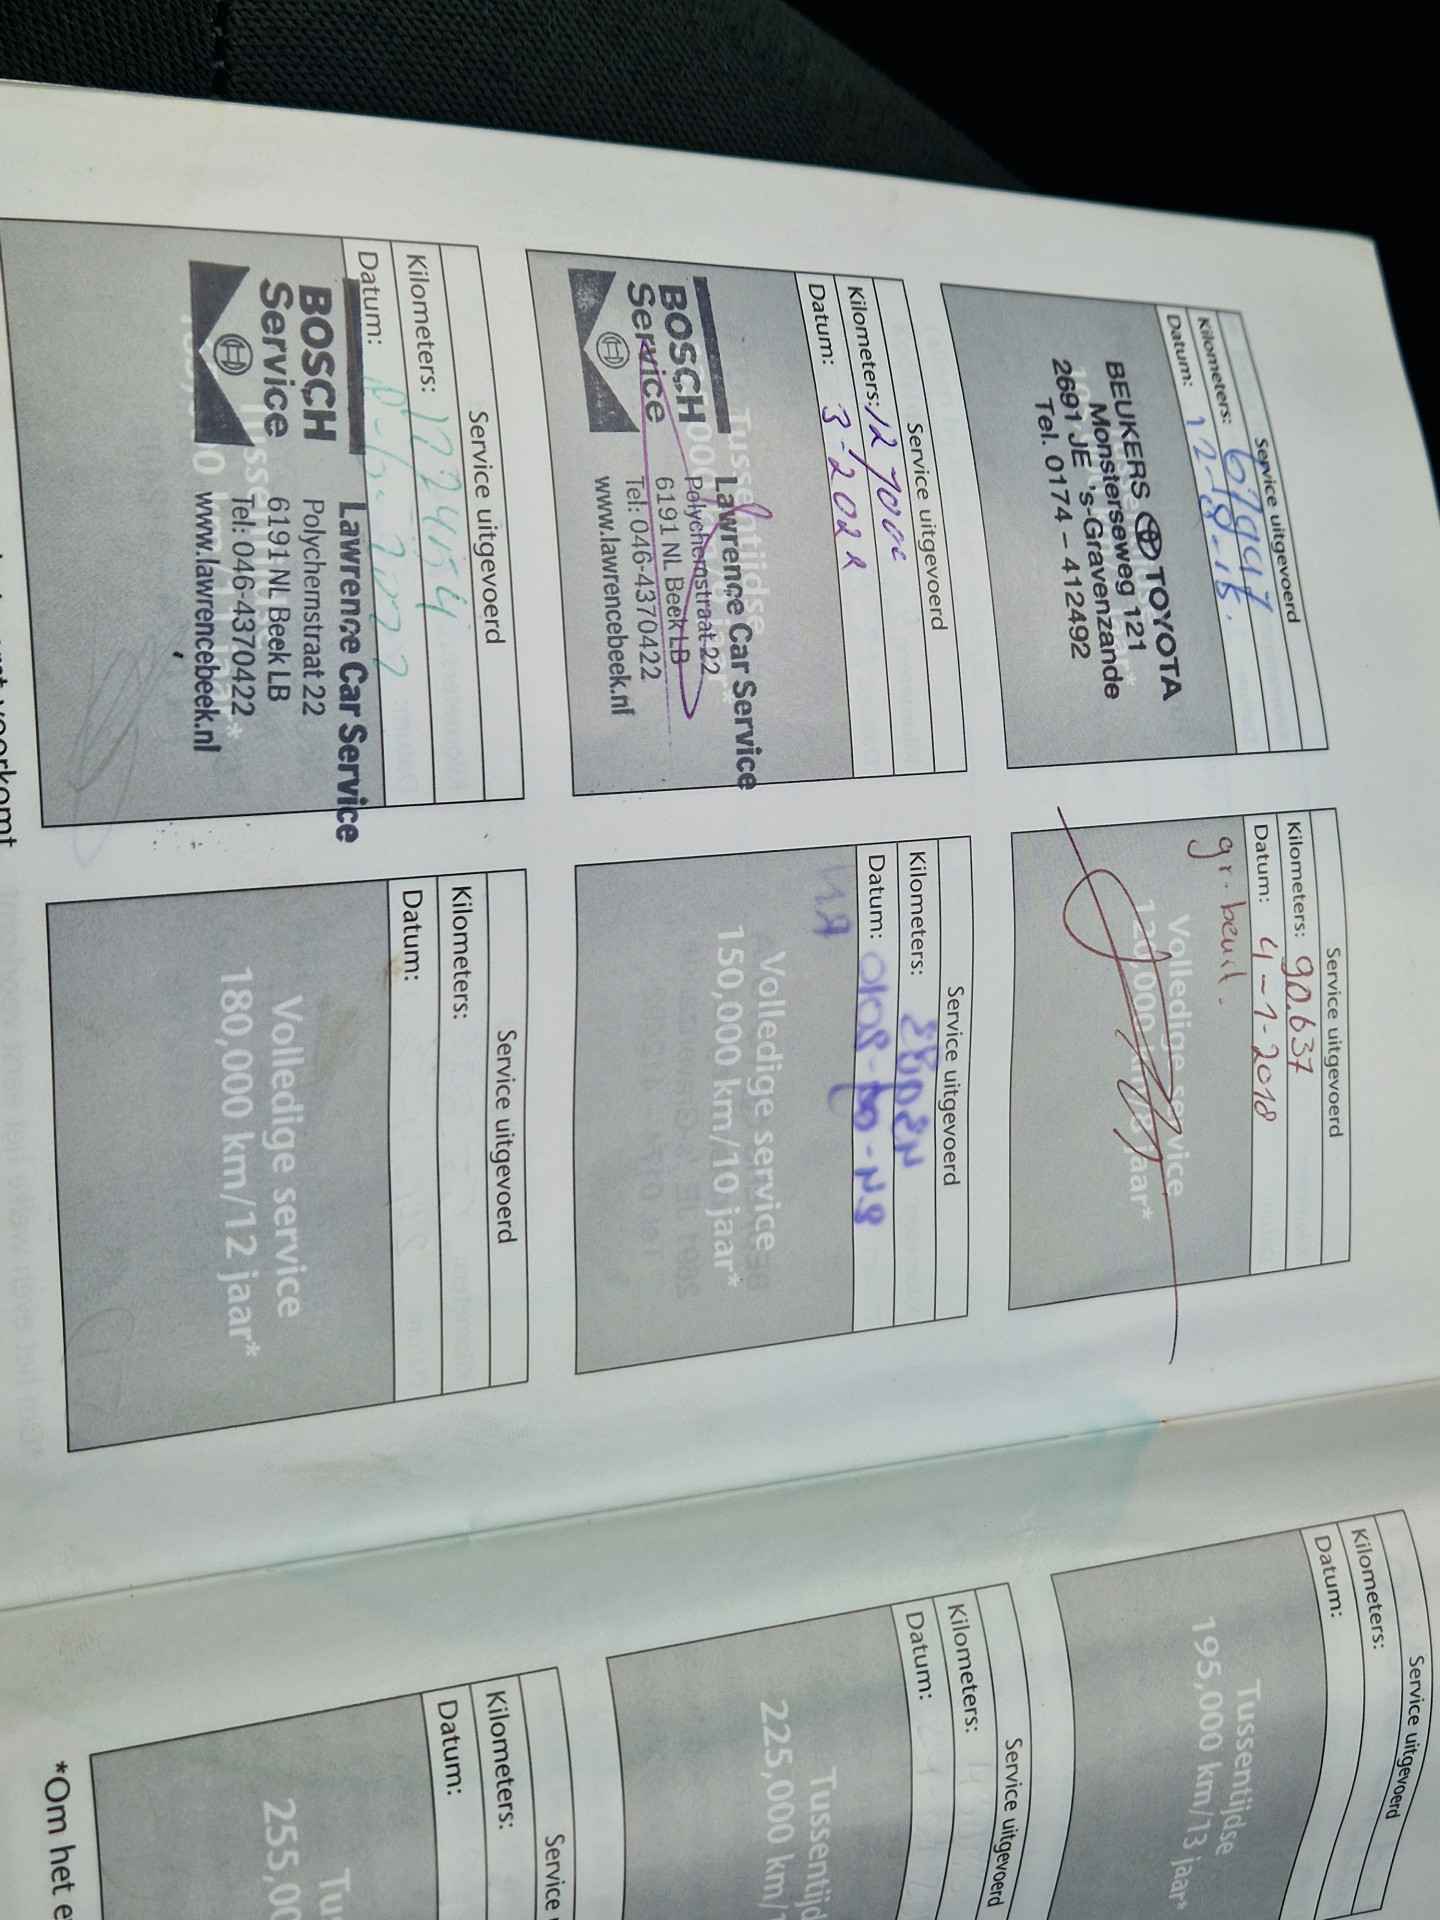 Service uitgevoerd
Kilometers: 67947
Datum: 12-8-15.
BEUKERS TOYOTA
Monsterseweg 121
2691 JE 's-Gravenzande
Tel. 0174 – 412492
Service uitgevoerd
Kilometers: 90.637
Datum: 4-1-2018
gr. beurt.
Volledige service
120,000 km/8 jaar*
Service uitgevoerd
Kilometers:
Datum: 3-2021
Tussentijdse
BOSCH
Service
Lawrence Car Service
Polychemstraat 22
6191 NL Beek LB
Tel: 046-4370422
www.lawrencebeek.nl
Service uitgevoerd
Kilometers:
Datum:
Volledige service
150,000 km/10 jaar*
Service uitgevoerd
Kilometers:
Datum:
BOSCH
Service
Lawrence Car Service
Polychemstraat 22
6191 NL Beek LB
Tel: 046-4370422
www.lawrencebeek.nl
Service uitgevoerd
Kilometers:
Datum:
Volledige service
180,000 km/12 jaar*
voorkomt
Service uitgevoerd
Kilometers:
Datum:
Tussentijdse
195,000 km/13 jaar*
Service uitgevoerd
Kilometers:
Datum:
Tussentijd
225,000 km/1
Service
Kilometers:
Datum:
Tu
255,00
*Om het e